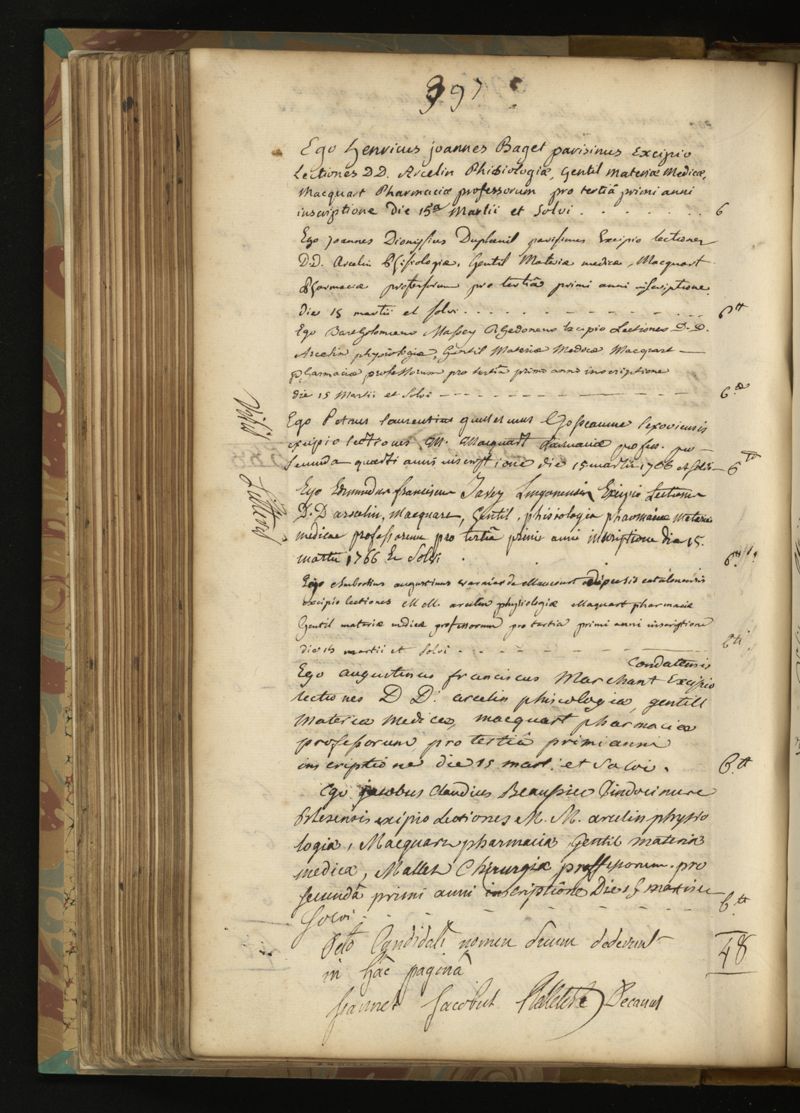 397
Ego henricus joannes Baget parisinus Excipio
Lectiones D.D. Arcelin Phisiologiæ, Gentil materiæ Medicæ,
Macquart Pharmaciæ professorum pro tertiâ primi anni
inscriptione die 15ª Martii et Solvi . . . . . . . 6
Ego joannes Dionysius parisinus Excipio lectiones
D.D. Arcelin Phisiologiæ, Gentil Materiæ medicæ, Macquart
Pharmaciæ professorum pro tertiâ primi anni inscriptione
die 15 martii et solvi . . . . . . 6tt
Ego Bartholomeus Massey Excipio Lectiones D.D.
Arcelin physiologiæ, Gentil Materiæ Medicæ Macquart
pharmaciæ professorum pro tertiâ primo anno inscriptione
die 15 Martii et Solvi - - - - - 6tt
Ego Petrus laurentius guillelmus lexoviensis
excipio lectiones M. Macquart professo. pro
Secunda quarti anni inscriptione die 15 martii 1766 et solvi - 6tt
Ego Edmundus franciscus Lingonensis Excipio Lectiones
D.D arcelin, macquart, Gentil, phisiologiæ pharmaciæ materiæ
medicæ professorum pro tertiâ primi anni inscriptione die 15
martii 1766 Et Solvi . . . 6tt
Ego Ambrosius augustinus de catalaunensis
excipio lectiones M M. arcelin physiologiæ Maquart pharmaciæ
Gentil materiæ medicæ professorum pro tertia primi anni inscriptione
die 15 martii et solvi - - - - 6tt
condatensis
Ego augustinus franciscus Marchant Excipio
lectiones D D. arcelin phisiologiæ, gentill
materiæ medicæ, macquart pharmaciæ
professorum pro tertiâ primi anni
inscriptione die 15 mart. et Solvi. 6tt
Ego jacobus Claudius Beaussier Vindocineus
Blesensis excipio Lectiones M. M. arcelin physio
logiæ, Macquart pharmaciæ Gentil materiæ
medicæ, Mallet Chirurgiæ professorum pro
secundâ primi anni inscriptione Die 15 martii
Solvi - - - - - 6tt
Octo Candidati nomen suum dederunt
in hâc paginâ 48
Decanus